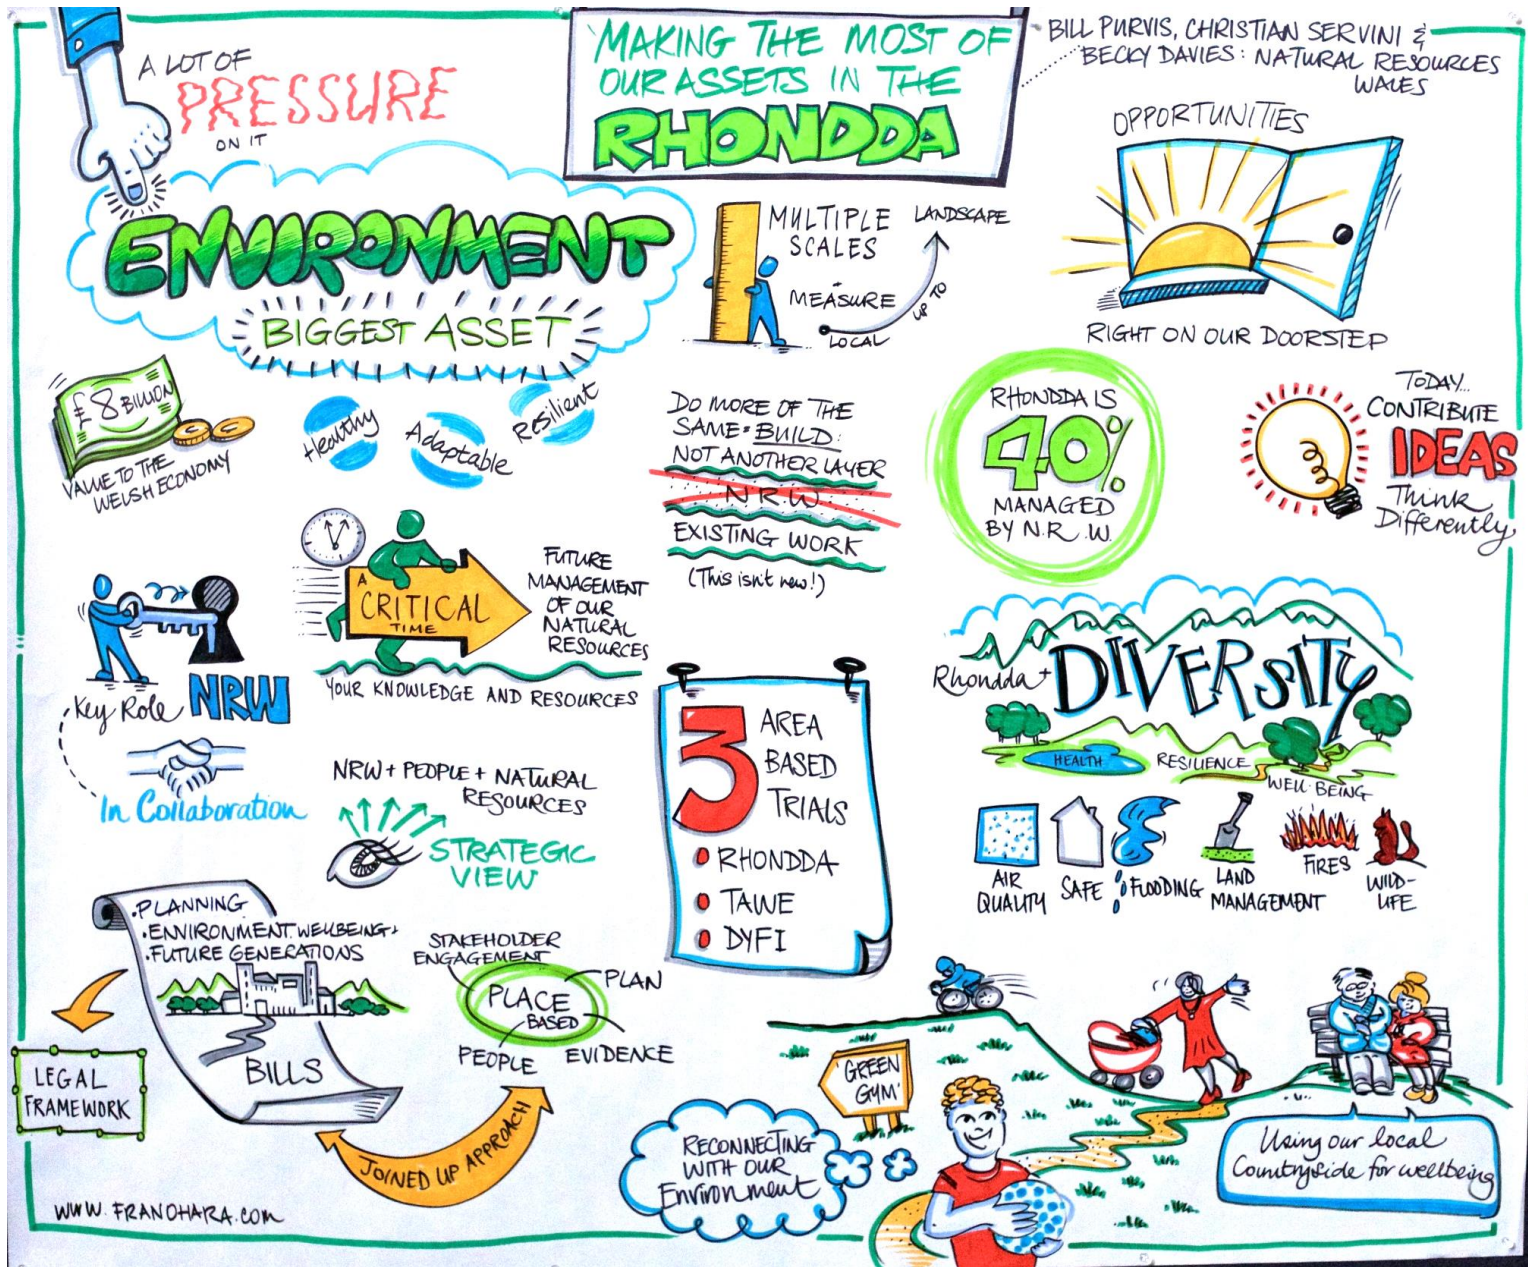 A LOT OF
PRESSURE
ON IT
'MAKING THE MOST OF
OUR ASSETS IN THE
RHONDDA
BILL PURVIS, CHRISTIAN SERVINI &
BECKY DAVIES: NATURAL RESOURCES
WALES
ENVIRONMENT
BIGGEST ASSET
£8 BILLION
VALUE TO THE
WELSH ECONOMY
Healthy
Adaptable
Resilient
MULTIPLE
SCALES
- MEASURE
LANDSCAPE
UP TO
LOCAL
OPPORTUNITIES
RIGHT ON OUR DOORSTEP
DO MORE OF THE
SAME = BUILD:
NOT ANOTHER LAYER
N.R.W.
EXISTING WORK
(This isn't new!)
RHONDDA IS
40%
MANAGED
BY N.R.W.
TODAY...
CONTRIBUTE
IDEAS
Think
Differently
A
CRITICAL
TIME
FUTURE
MANAGEMENT
OF OUR
NATURAL
RESOURCES
YOUR KNOWLEDGE AND RESOURCES
Key Role NRW
In Collaboration
NRW + PEOPLE + NATURAL
RESOURCES
STRATEGIC
VIEW
3
AREA
BASED
TRIALS
• RHONDDA
• TAWE
• DYFI
Rhondda + DIVERSITY
HEALTH
RESILIENCE
WELL-BEING
AIR
QUALITY
SAFE
FLOODING
LAND
MANAGEMENT
FIRES
WILD-
LIFE
• PLANNING
• ENVIRONMENT, WELLBEING +
• FUTURE GENERATIONS
BILLS
LEGAL
FRAMEWORK
STAKEHOLDER
ENGAGEMENT
PLAN
PLACE
BASED
PEOPLE
EVIDENCE
JOINED UP APPROACH
'GREEN
GYM'
RECONNECTING
WITH OUR
Environment
Using our local
Countryside for wellbeing
WWW.FRANOHARA.COM